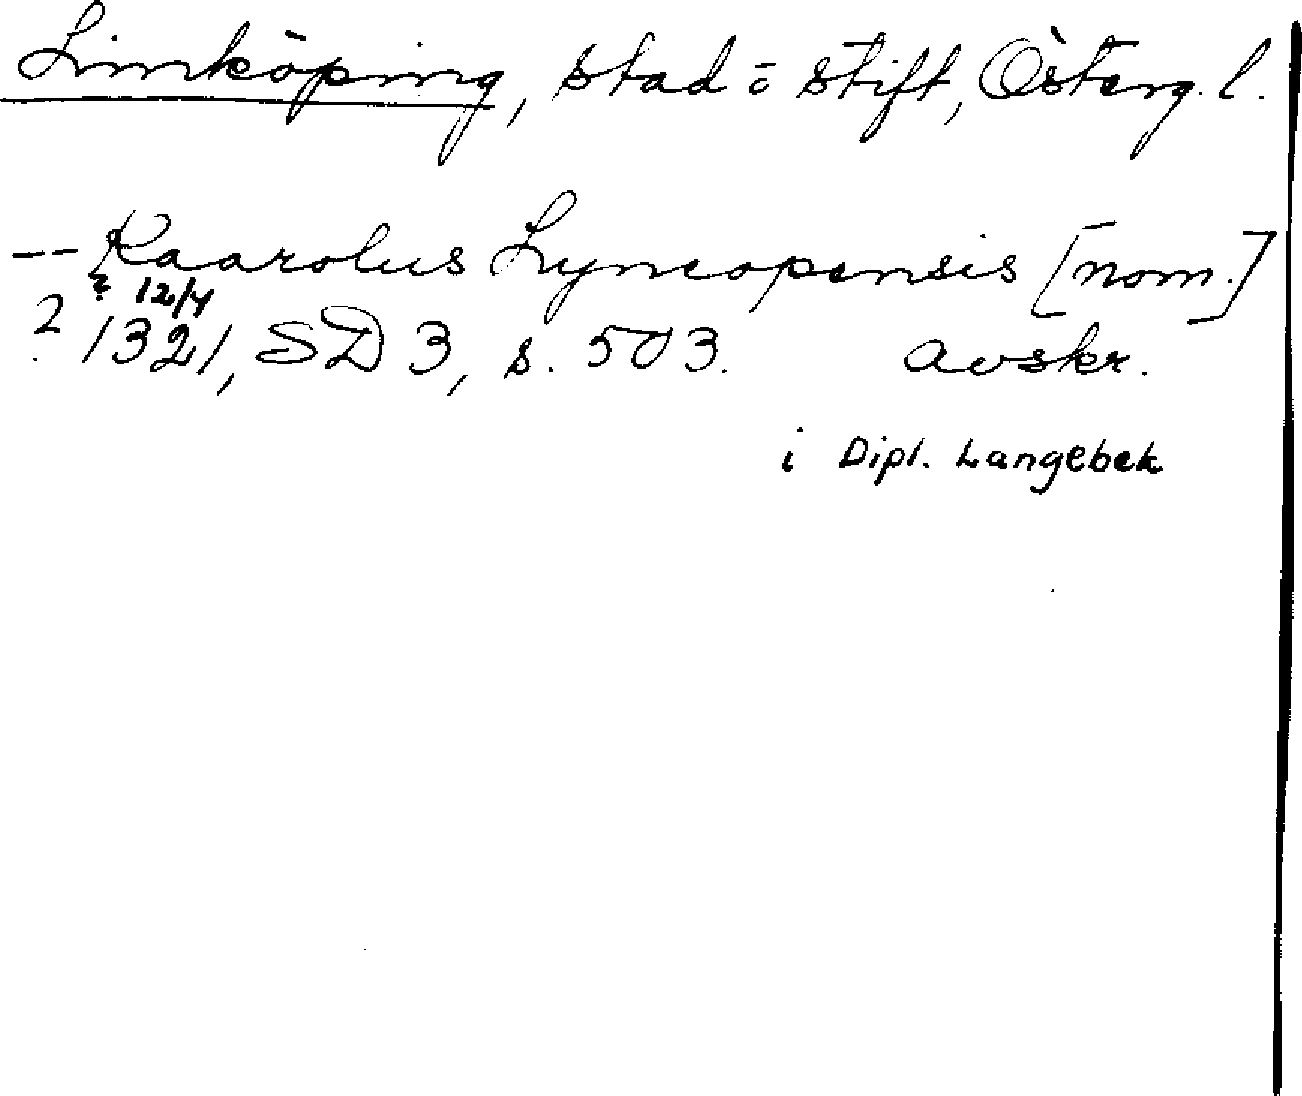 Linköping, stad o stift, Österg. l.
-- Kaarolus Lyncopensis [nom.]
? 12/4
? 1321, SD 3, s. 503. avskr.
i Dipl. Langebek